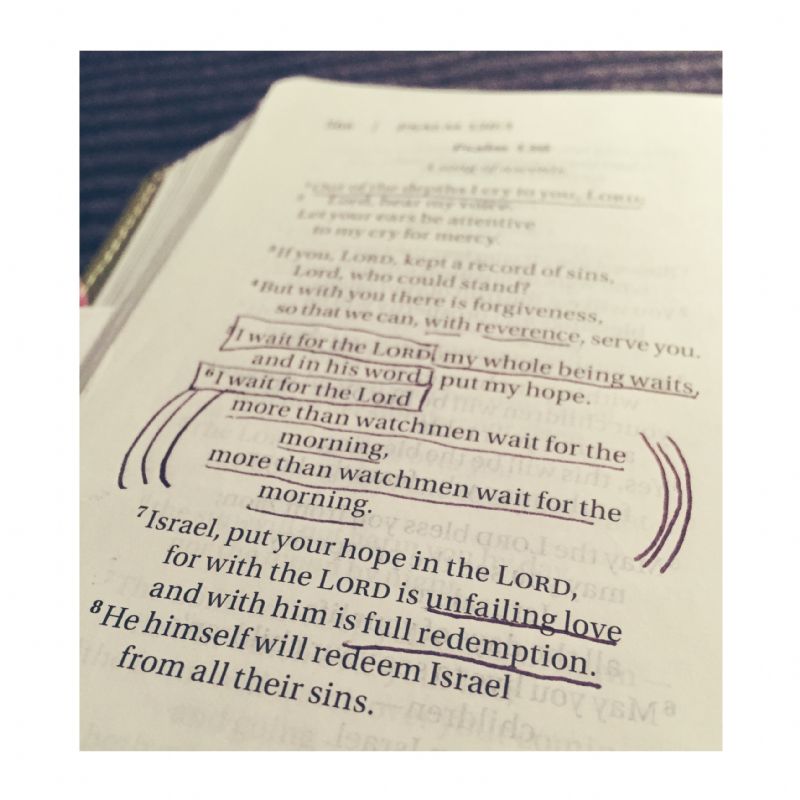 Psalm 130
A song of ascents.
¹Out of the depths I cry to you, LORD;
² Lord, hear my voice.
Let your ears be attentive
to my cry for mercy.
³If you, LORD, kept a record of sins,
Lord, who could stand?
⁴But with you there is forgiveness,
so that we can, with reverence, serve you.
⁵I wait for the LORD, my whole being waits,
and in his word I put my hope.
⁶I wait for the Lord
more than watchmen wait for the
morning,
more than watchmen wait for the
morning.
⁷Israel, put your hope in the LORD,
for with the LORD is unfailing love
and with him is full redemption.
⁸He himself will redeem Israel
from all their sins.